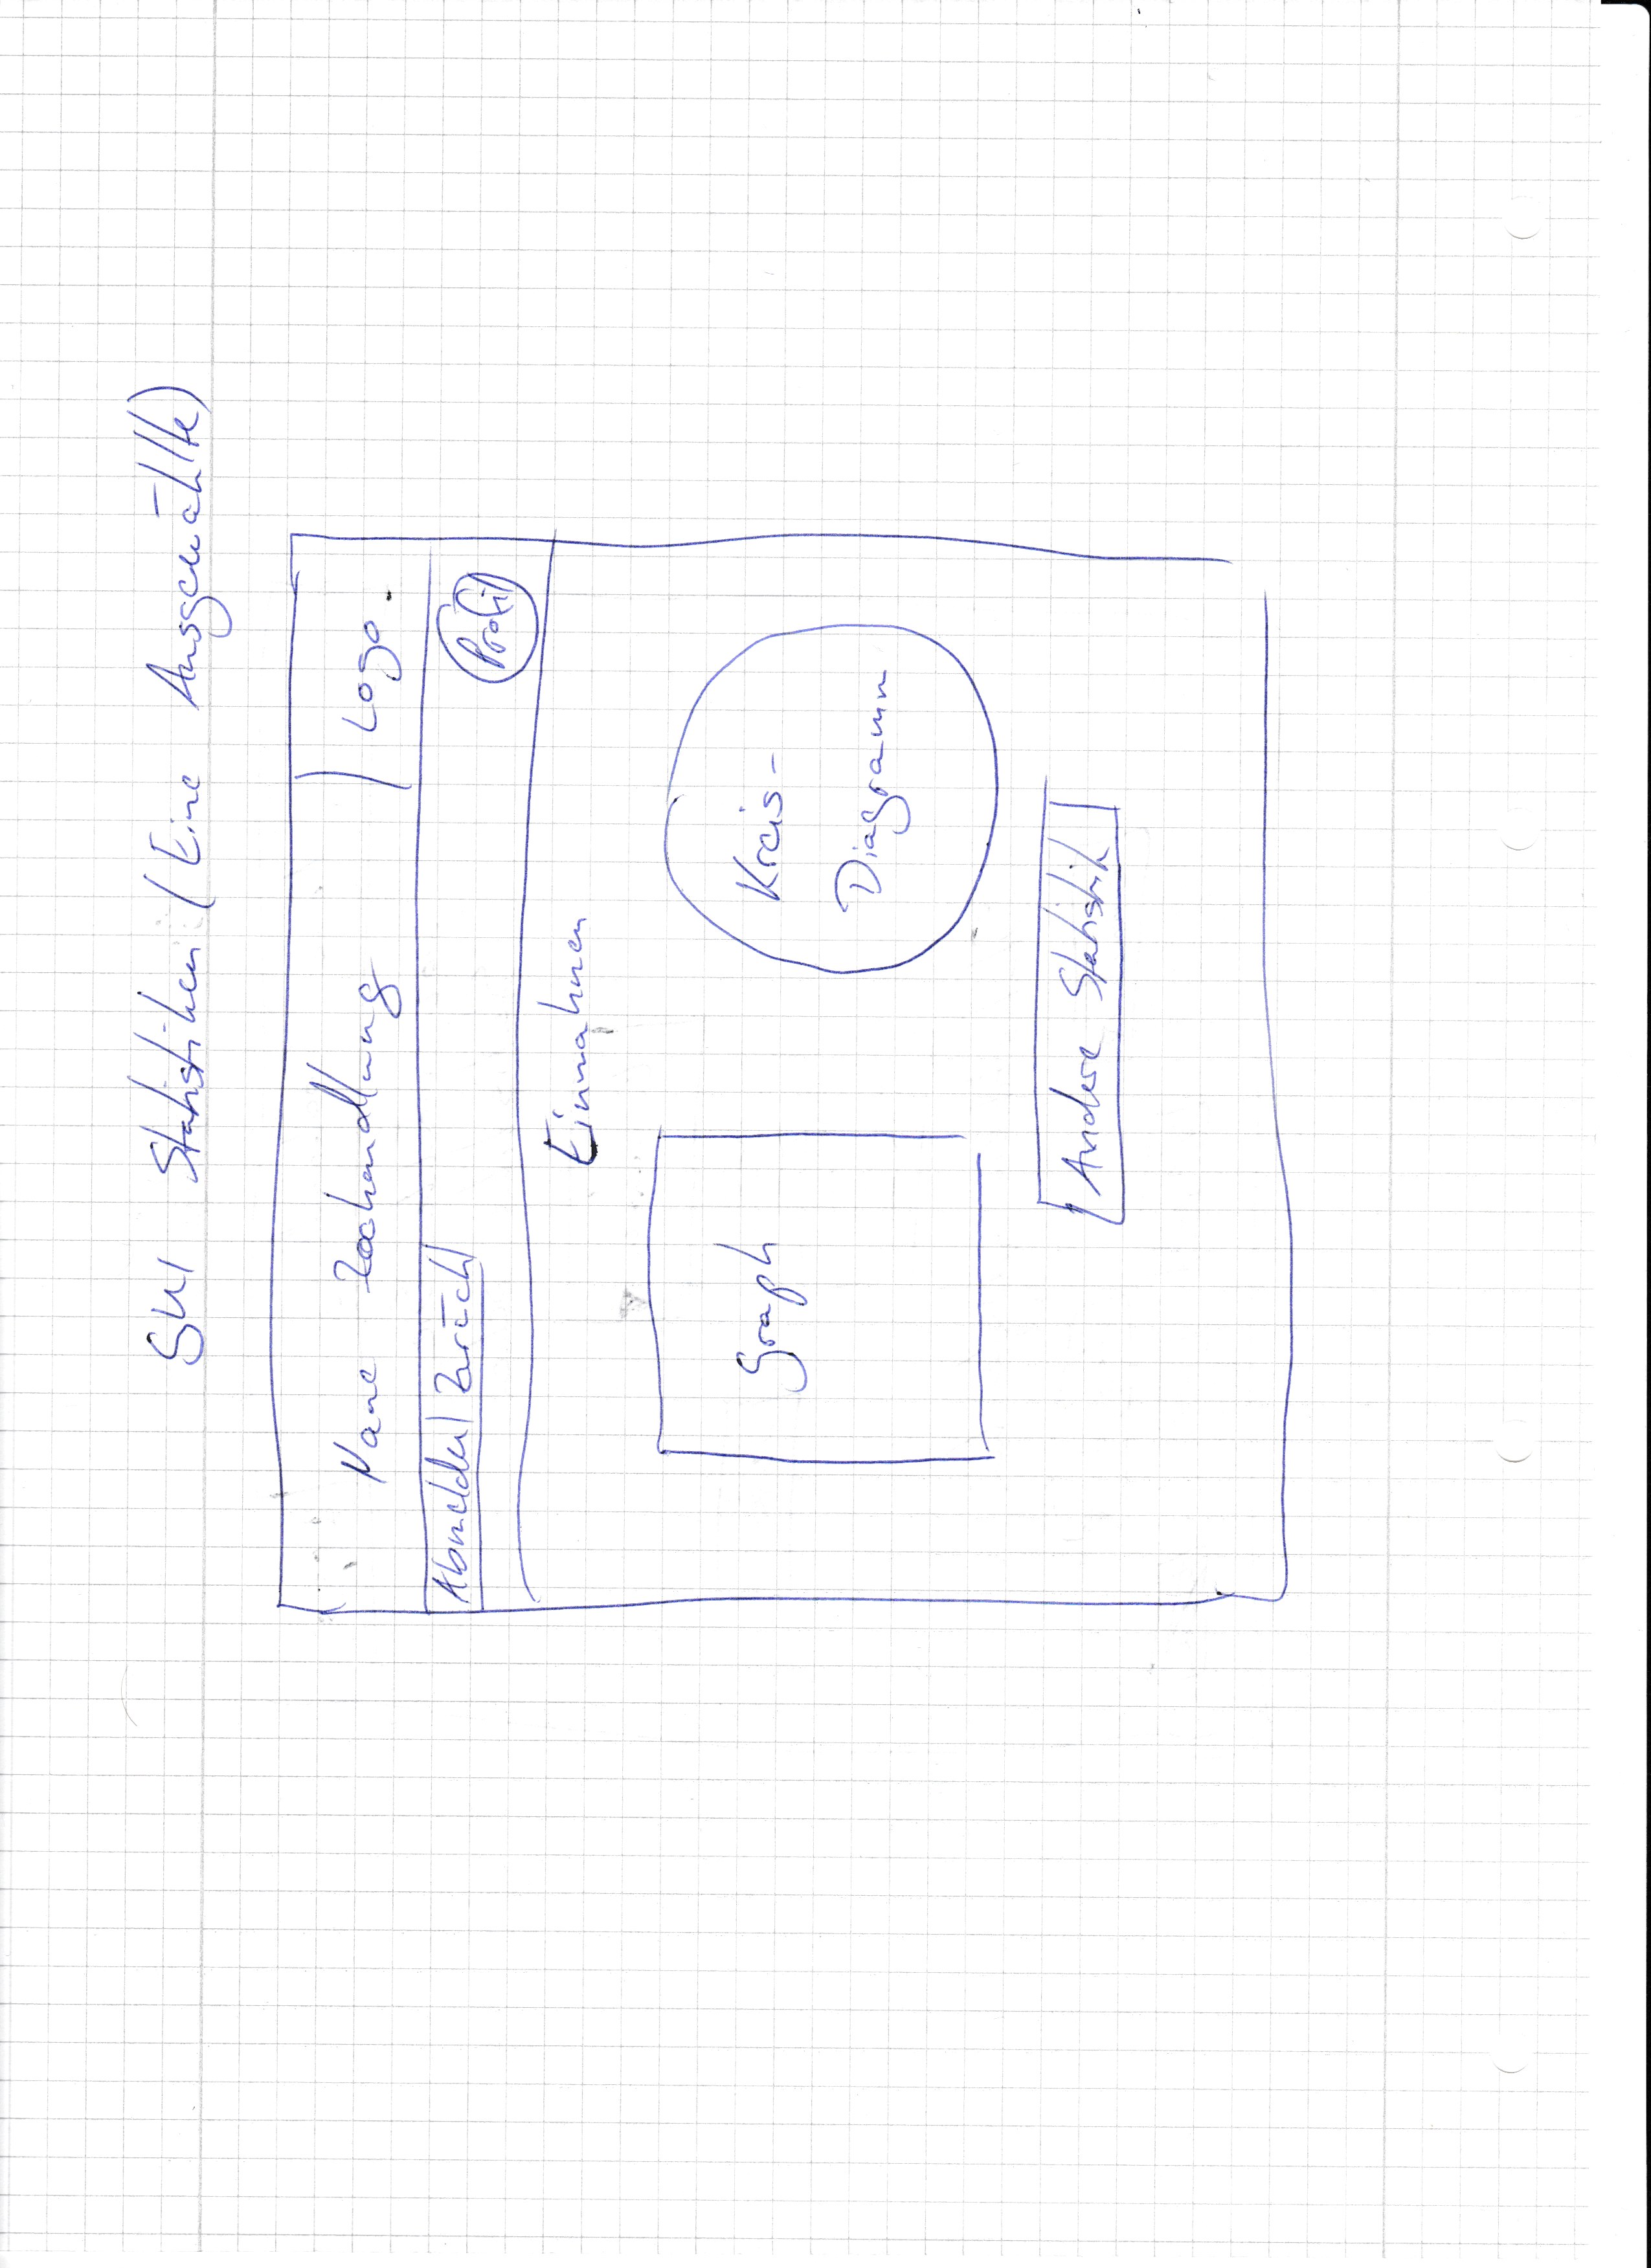 GUI Statistiken (Eine Ausgewählte)
Name Zoohandlung | Logo
Abmelden | Zurück
Profil
Einnahmen
Graph
Kreis-
Diagramm
Andere Statistik